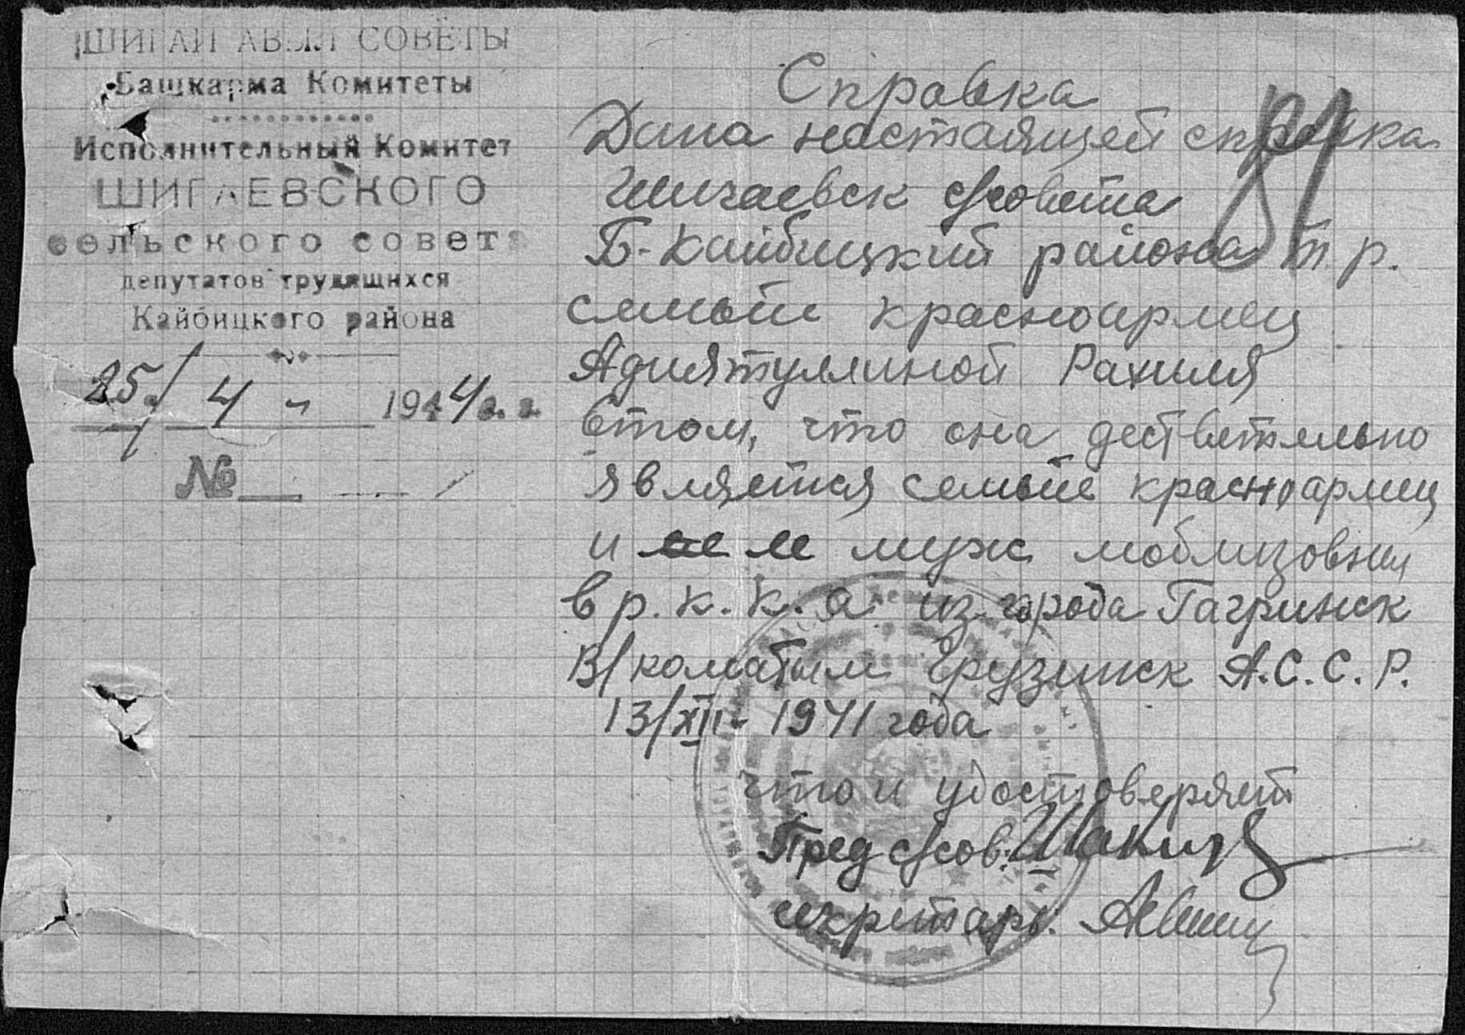 ШИГАЙ АВЫЛ СОВЕТЫ
Башкарма Комитеты
Исполнительный Комитет
ШИГАЕВСКОГО
сельского совета
депутатов трудящихся
Кайбицкого района
25/ 4 - 1944 г. г.
№
Справка
81
Дана настаящей справка
Шигаевск с/совета
Б-Кайбицкий района т р.
семьйи красноармец
Адиятуллиной Рахиля
втом, что она дествительно
является семьйе красноармец
и ее муж моблизовн
в р. К. К. а из города Гагринск
В/коматым Грузинск А.С.С.Р.
13/XII - 1941 года
что и удостоверяет
Пред с/сов:
секретарь: